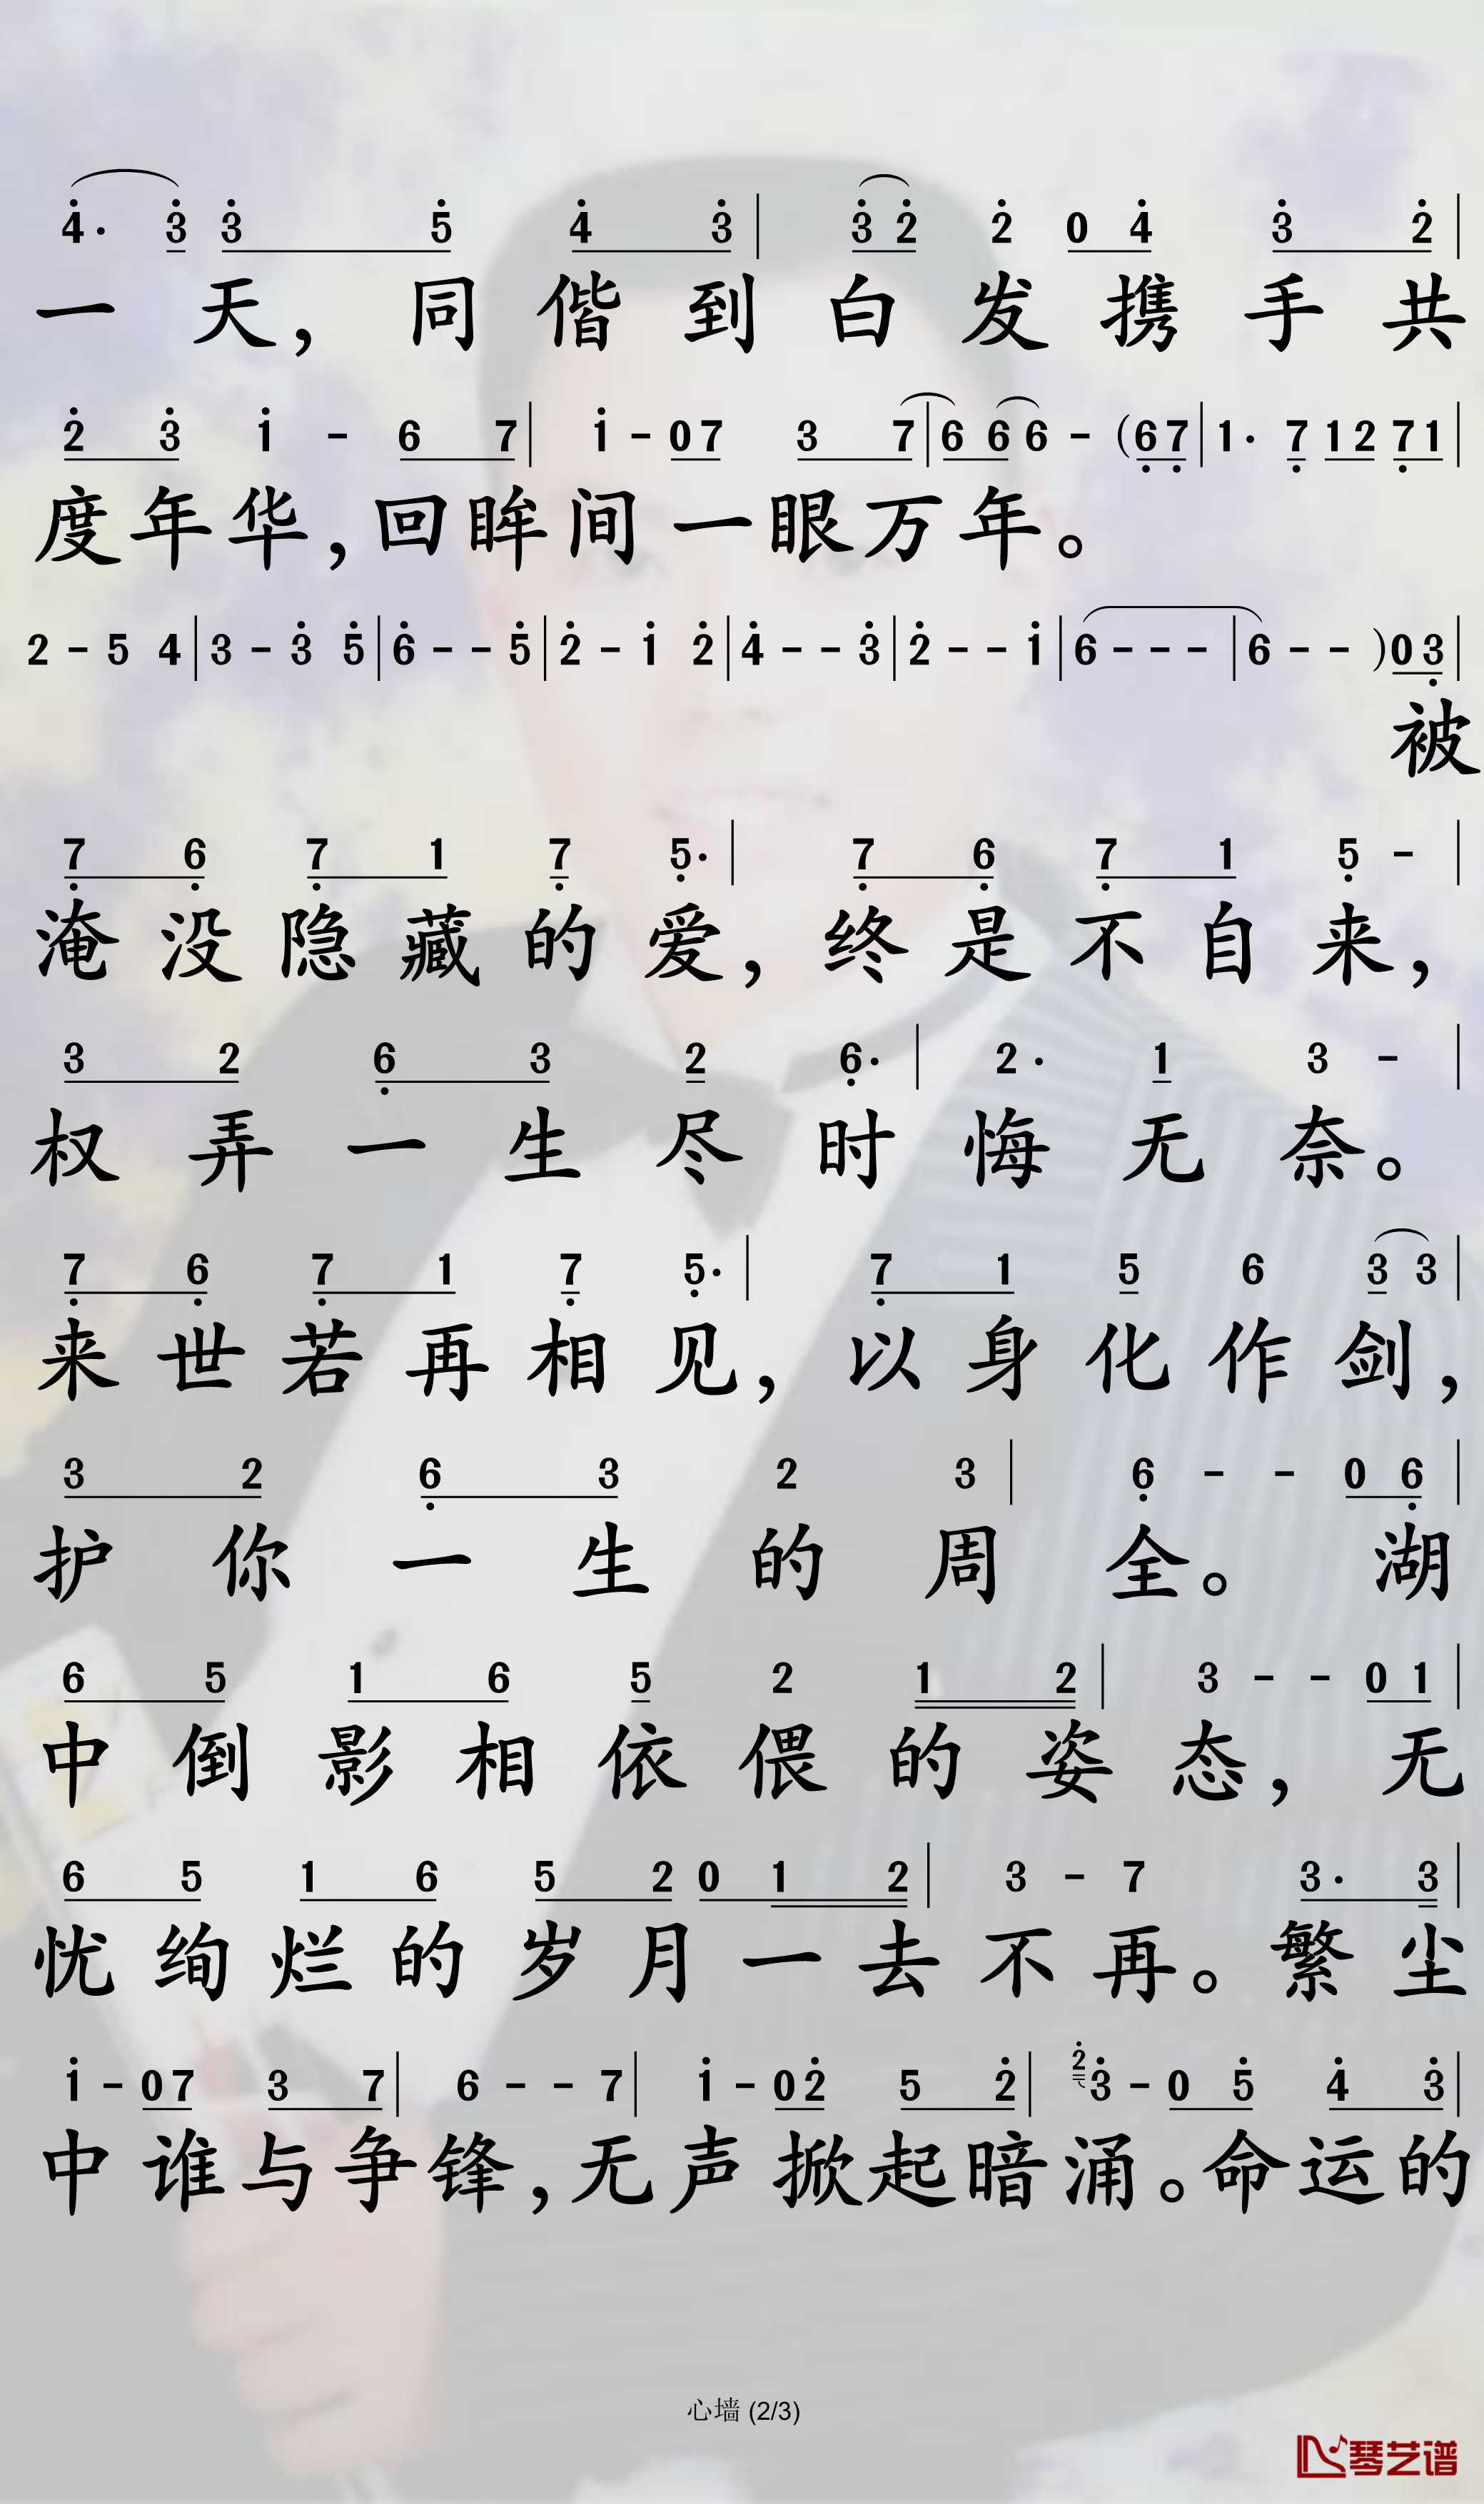 4· 3 3 5 4 3 | 3 2 2 0 4 3 2 |
一天，同偕到白发携手共
2 3 1 - 6 7 | 1 - 0 7 3 7 | 6 6 6 - (6 7 | 1· 7 1 2 7 1 |
度年华，回眸间一眼万年。
2 - 5 4 | 3 - 3 5 | 6 - - 5 | 2 - 1 2 | 4 - - 3 | 2 - - 1 | 6 - - - | 6 - - ) 0 3 |
被
7 6 7 1 7 5· | 7 6 7 1 5 - |
淹没隐藏的爱，终是不自来，
3 2 6 3 2 6· | 2· 1 3 - |
权弄一生尽时悔无奈。
7 6 7 1 7 5· | 7 1 5 6 3 3 |
来世若再相见，以身化作剑，
3 2 6 3 2 3 | 6 - - 0 6 |
护你一生的周全。湖
6 5 1 6 5 2 1 2 | 3 - - 0 1 |
中倒影相依偎的姿态，无
6 5 1 6 5 2 0 1 2 | 3 - 7 3· 3 |
忧绚烂的岁月一去不再。繁尘
1 - 0 7 3 7 | 6 - - 7 | 1 - 0 2 5 2 | 2 3 - 0 5 4 3 |
中谁与争锋，无声掀起暗涌。命运的
心墙 (2/3)
琴艺谱